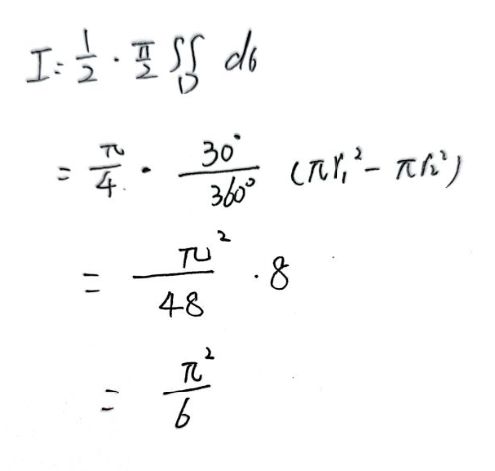 I = 1/2 · π/2 ∬_D dσ
= π/4 · 30°/360° (πr₁² - πr₂²)
= π²/48 · 8
= π²/6